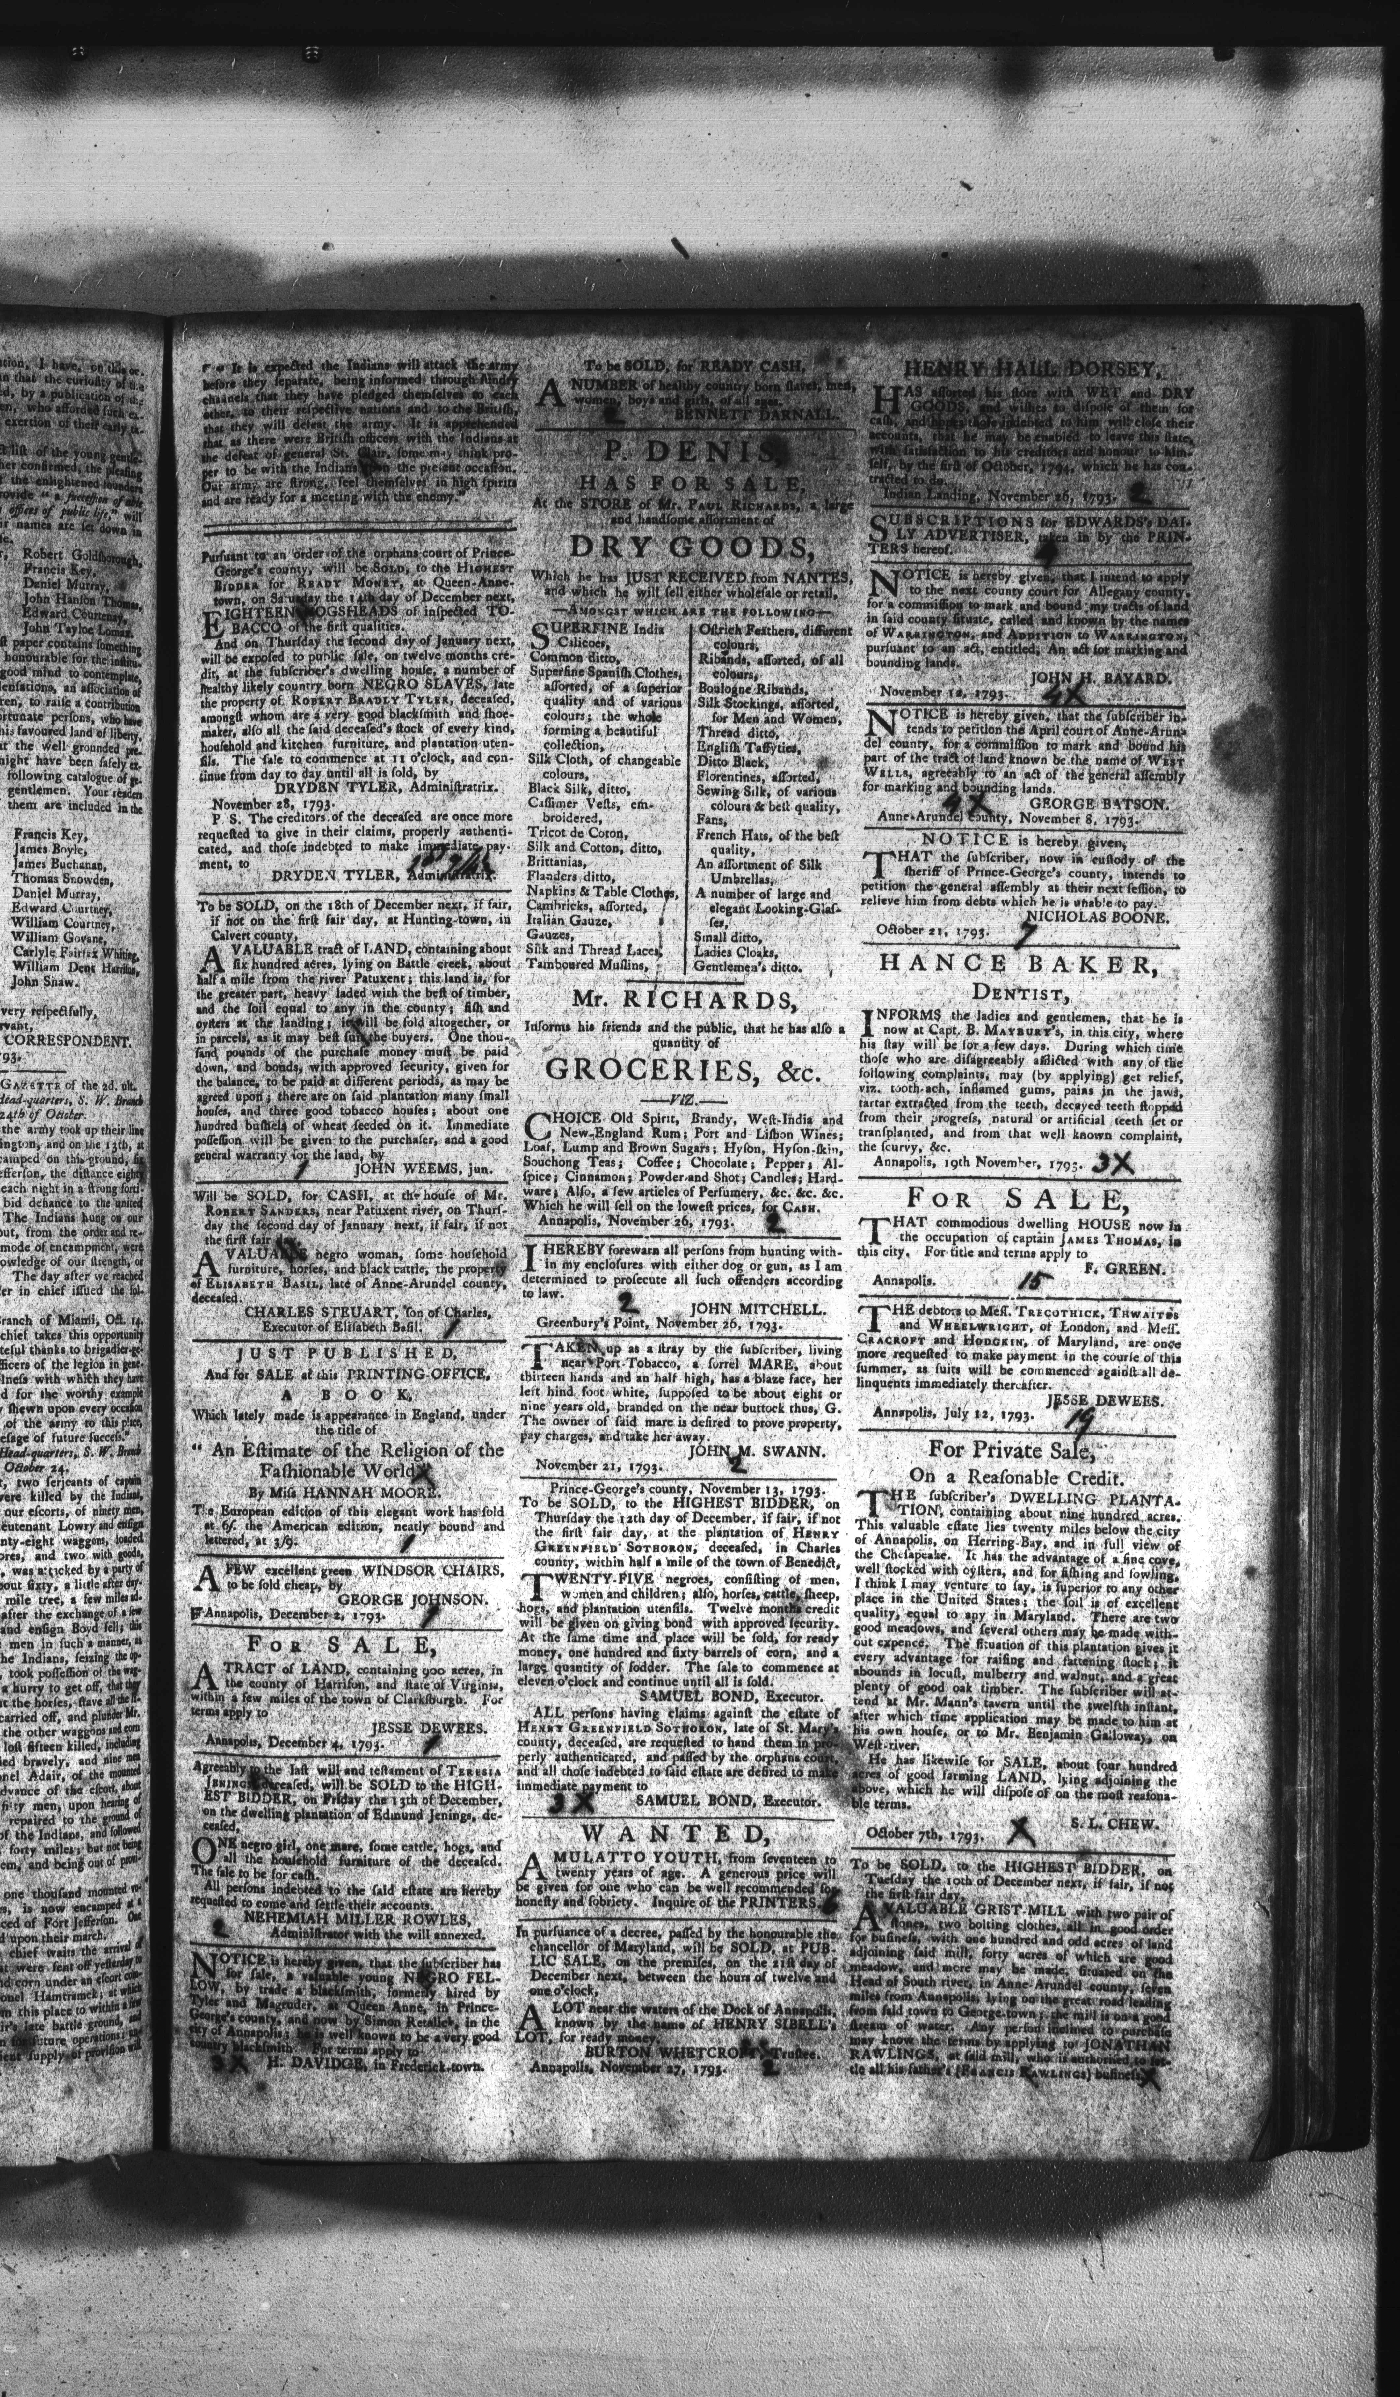 It is expected the Indians will attack the army
before they separate, being informed through sundry
channels that they have pledged themselves to each
other, to their respective nations and to the British,
that they will defeat the army. It is apprehended
that as there were British officers with the Indians at
the defeat of general St. Clair, some may think pro-
per to be with the Indians upon the present occasion.
Our army are strong, feel themselves in high spirits
and are ready for a meeting with the enemy."
Pursuant to an order of the orphans court of Prince-
George's county, will be SOLD, to the HIGHEST
BIDDER for READY MONEY, at Queen-Anne-
town, on Saturday the 14th day of December next,
EIGHTEEN HOGSHEADS of inspected TO-
BACCO of the first qualities.
And on Thursday the second day of January next,
will be exposed to public sale, on twelve months cre-
dit, at the subscriber's dwelling house, a number of
healthy likely country born NEGRO SLAVES, late
the property of ROBERT BRADLY TYLER, deceased,
amongst whom are a very good blacksmith and shoe-
maker, also all the said deceased's stock of every kind,
household and kitchen furniture, and plantation uten-
sils. The sale to commence at 11 o'clock, and con-
tinue from day to day until all is sold, by
DRYDEN TYLER, Administratrix.
November 28, 1793.
P. S. The creditors of the deceased are once more
requested to give in their claims, properly authenti-
cated, and those indebted to make immediate pay-
ment, to
DRYDEN TYLER, Administratrix.
To be SOLD, on the 18th of December next, if fair,
if not on the first fair day, at Hunting-town, in
Calvert county,
A VALUABLE tract of LAND, containing about
six hundred acres, lying on Battle creek, about
half a mile from the river Patuxent; this land is, for
the greater part, heavy laded with the best of timber,
and the soil equal to any in the county; fish and
oysters at the landing; it will be sold altogether, or
in parcels, as it may best suit the buyers. One thou-
sand pounds of the purchase money must be paid
down, and bonds, with approved security, given for
the balance, to be paid at different periods, as may be
agreed upon; there are on said plantation many small
houses, and three good tobacco houses; about one
hundred bushels of wheat seeded on it. Immediate
possession will be given to the purchaser, and a good
general warranty for the land, by
JOHN WEEMS, jun.
1
Will be SOLD, for CASH, at the house of Mr.
ROBERT SANDERS, near Patuxent river, on Thurs-
day the second day of January next, if fair, if not
the first fair
A VALUABLE negro woman, some household
furniture, horses, and black cattle, the property
of ELISABETH BASIL, late of Anne-Arundel county,
deceased.
CHARLES STEUART, son of Charles,
Executor of Elisabeth Basil. 1
JUST PUBLISHED,
And for SALE at this PRINTING-OFFICE,
A BOOK,
Which lately made is appearance in England, under
the title of
" An Estimate of the Religion of the
Fashionable World
By Miss HANNAH MOORE.
The European edition of this elegant work has sold
at 6s. the American edition, neatly bound and
lettered, at 3/9. 1
A FEW excellent green WINDSOR CHAIRS,
to be sold cheap, by
GEORGE JOHNSON.
Annapolis, December 2, 1793. 1
FOR SALE,
A TRACT of LAND, containing 900 acres, in
the county of Harrison, and state of Virginia,
within a few miles of the town of Clarksburgh. For
terms apply to
JESSE DEWEES.
Annapolis, December 4, 1793. 1
Agreeably to the last will and testament of TERESIA
JENINGS deceased, will be SOLD to the HIGH-
EST BIDDER, on Friday the 13th of December,
on the dwelling plantation of Edmund Jenings, de-
ceased,
ONE negro girl, one mare, some cattle, hogs, and
all the household furniture of the deceased.
The sale to be for cash.
All persons indebted to the said estate are hereby
requested to come and settle their accounts.
NEHEMIAH MILLER ROWLES,
2 Administrator with the will annexed.
NOTICE is hereby given, that the subscriber has
for sale, a valuable young NEGRO FEL-
LOW, by trade a blacksmith, formerly hired by
Tyler and Magruder, at Queen Anne, in Prince-
George's county, and now by Simon Retallick, in the
city of Annapolis; he is well known to be a very good
country blacksmith. For terms apply to
H. DAVIDGE, in Frederick-town.
To be SOLD, for READY CASH,
A NUMBER of healthy country born slaves, men,
women, boys and girls, of all ages.
2 BENNETT DARNALL.
P. DENIS,
HAS FOR SALE,
At the STORE of Mr. PAUL RICHARDS, a large
and handsome assortment of
DRY GOODS,
Which he has JUST RECEIVED from NANTES,
and which he will sell either wholesale or retail.
—AMONGST WHICH ARE THE FOLLOWING—
SUPERFINE India
Calicoes,
Common ditto,
Superfine Spanish Clothes,
assorted, of a superior
quality and of various
colours; the whole
forming a beautiful
collection,
Silk Cloth, of changeable
colours,
Black Silk, ditto,
Cassimer Vests, em-
broidered,
Tricot de Coton,
Silk and Cotton, ditto,
Brittanias,
Flanders ditto,
Napkins & Table Clothes,
Cambricks, assorted,
Italian Gauze,
Gauzes,
Silk and Thread Laces,
Tamboured Muslins,
Ostrich Feathers, different
colours,
Ribands, assorted, of all
colours,
Boulogne Ribands,
Silk Stockings, assorted,
for Men and Women,
Thread ditto,
English Taffyties,
Ditto Black,
Florentines, assorted,
Sewing Silk, of various
colours & best quality,
Fans,
French Hats, of the best
quality,
An assortment of Silk
Umbrellas,
A number of large and
elegant Looking-Glas-
ses,
Small ditto,
Ladies Cloaks,
Gentlemen's ditto.
Mr. RICHARDS,
Informs his friends and the public, that he has also a
quantity of
GROCERIES, &c.
—VIZ.—
CHOICE Old Spirit, Brandy, West-India and
New-England Rum; Port and Lisbon Wines;
Loaf, Lump and Brown Sugars; Hyson, Hyson-skin,
Souchong Teas; Coffee; Chocolate; Pepper; Al-
spice; Cinnamon; Powder and Shot; Candles; Hard-
ware; Also, a few articles of Perfumery, &c. &c. &c.
Which he will sell on the lowest prices, for CASH.
Annapolis, November 26, 1793. 2
I HEREBY forewarn all persons from hunting with-
in my enclosures with either dog or gun, as I am
determined to prosecute all such offenders according
to law.
2 JOHN MITCHELL.
Greenbury's Point, November 26, 1793.
TAKEN up as a stray by the subscriber, living
near Port-Tobacco, a sorrel MARE, about
thirteen hands and an half high, has a blaze face, her
left hind foot white, supposed to be about eight or
nine years old, branded on the near buttock thus, G.
The owner of said mare is desired to prove property,
pay charges, and take her away.
JOHN M. SWANN.
November 21, 1793. 2
Prince-George's county, November 13, 1793.
To be SOLD, to the HIGHEST BIDDER, on
Thursday the 12th day of December, if fair, if not
the first fair day, at the plantation of HENRY
GREENFIELD SOTHORON, deceased, in Charles
county, within half a mile of the town of Benedict,
TWENTY-FIVE negroes, consisting of men,
women and children; also, horses, cattle, sheep,
hogs, and plantation utensils. Twelve months credit
will be given on giving bond with approved security.
At the same time and place will be sold, for ready
money, one hundred and sixty barrels of corn, and a
large quantity of fodder. The sale to commence at
eleven o'clock and continue until all is sold.
SAMUEL BOND, Executor.
ALL persons having claims against the estate of
HENRY GREENFIELD SOTHORON, late of St. Mary's
county, deceased, are requested to hand them in pro-
perly authenticated, and passed by the orphans court,
and all those indebted to said estate are desired to make
immediate payment to
3X SAMUEL BOND, Executor.
WANTED,
A MULATTO YOUTH, from seventeen to
twenty years of age. A generous price will
be given for one who can be well recommended for
honesty and sobriety. Inquire of the PRINTERS.
In pursuance of a decree, passed by the honourable the
chancellor of Maryland, will be SOLD, at PUB-
LIC SALE, on the premises, on the 21st day of
December next, between the hours of twelve and
one o'clock,
A LOT near the waters of the Dock of Annapolis,
known by the name of HENRY SIBELL's
LOT, for ready money.
BURTON WHETCROFT, Trustee.
Annapolis, November 27, 1793. 2
HENRY HALL DORSEY,
HAS assorted his store with WET and DRY
GOODS, and wishes to dispose of them for
cash, and hopes those indebted to him will close their
accounts, that he may be enabled to leave this state,
with satisfaction to his creditors and honour to him-
self, by the first of October, 1794, which he has con-
tracted to do.
Indian Landing, November 26, 1793. 2
SUBSCRIPTIONS for EDWARDS's DAI-
LY ADVERTISER, taken in by the PRIN-
TERS hereof.
NOTICE is hereby given, that I intend to apply
to the next county court for Allegany county,
for a commission to mark and bound my tracts of land
in said county situate, called and known by the names
of WARRINGTON, and ADDITION to WARRINGTON,
pursuant to an act, entitled, An act for marking and
bounding lands.
JOHN H. BAYARD.
November 12, 1793. 4X
NOTICE is hereby given, that the subscriber in-
tends to petition the April court of Anne-Arun-
del county, for a commission to mark and bound his
part of the tract of land known be the name of WEST
WELLS, agreeably to an act of the general assembly
for marking and bounding lands.
4X GEORGE BATSON.
Anne-Arundel county, November 8, 1793.
NOTICE is hereby given,
THAT the subscriber, now in custody of the
sheriff of Prince-George's county, intends to
petition the general assembly at their next session, to
relieve him from debts which he is unable to pay.
NICHOLAS BOONE.
October 21, 1793. 7
HANCE BAKER,
DENTIST,
INFORMS the ladies and gentlemen, that he is
now at Capt. B. MAYBURY's, in this city, where
his stay will be for a few days. During which time
those who are disagreeably afflicted with any of the
following complaints, may (by applying) get relief,
viz. tooth-ach, inflamed gums, pains in the jaws,
tartar extracted from the teeth, decayed teeth stopped
from their progress, natural or artificial teeth set or
transplanted, and from that well known complaint,
the scurvy, &c.
Annapolis, 19th November, 1793. 3X
FOR SALE,
THAT commodious dwelling HOUSE now in
the occupation of captain JAMES THOMAS, in
this city. For title and terms apply to
F. GREEN.
Annapolis. 15
THE debtors to Mess. TRECOTHICK, THWAITES
and WHEELWRIGHT, of London, and Mess.
CRACROFT and HODGKIN, of Maryland, are once
more requested to make payment in the course of this
summer, as suits will be commenced against all de-
linquents immediately thereafter.
JESSE DEWEES.
Annapolis, July 12, 1793. 19
For Private Sale,
On a Reasonable Credit.
THE subscriber's DWELLING PLANTA-
TION, containing about nine hundred acres.
This valuable estate lies twenty miles below the city
of Annapolis, on Herring-Bay, and in full view of
the Chesapeake. It has the advantage of a fine cove,
well stocked with oysters, and for fishing and fowling,
I think I may venture to say, is superior to any other
place in the United States; the soil is of excellent
quality, equal to any in Maryland. There are two
good meadows, and several others may be made with-
out expence. The situation of this plantation gives it
every advantage for raising and fattening stock; it
abounds in locust, mulberry and walnut, and a great
plenty of good oak timber. The subscriber will at-
tend at Mr. Mann's tavern until the twelfth instant,
after which time application may be made to him at
his own house, or to Mr. Benjamin Galloway, on
West-river.
He has likewise for SALE, about four hundred
acres of good farming LAND, lying adjoining the
above, which he will dispose of on the most reasona-
ble terms.
S. L. CHEW.
October 7th, 1793. X
To be SOLD, to the HIGHEST BIDDER, on
Tuesday the 10th of December next, if fair, if not
the first fair day,
A VALUABLE GRIST-MILL with two pair of
stones, two bolting clothes, all in good order
for business, with one hundred and odd acres of land
adjoining said mill, forty acres of which are good
meadow, and more may be made, situated on the
Head of South river, in Anne-Arundel county, seven
miles from Annapolis, lying on the great road leading
from said town to George-town; the mill is on a good
stream of water. Any person inclined to purchase
may know the terms by applying to JONATHAN
RAWLINGS, at said mill, who is authorised to set-
tle all his father's (FRANCIS RAWLINGS) business. X